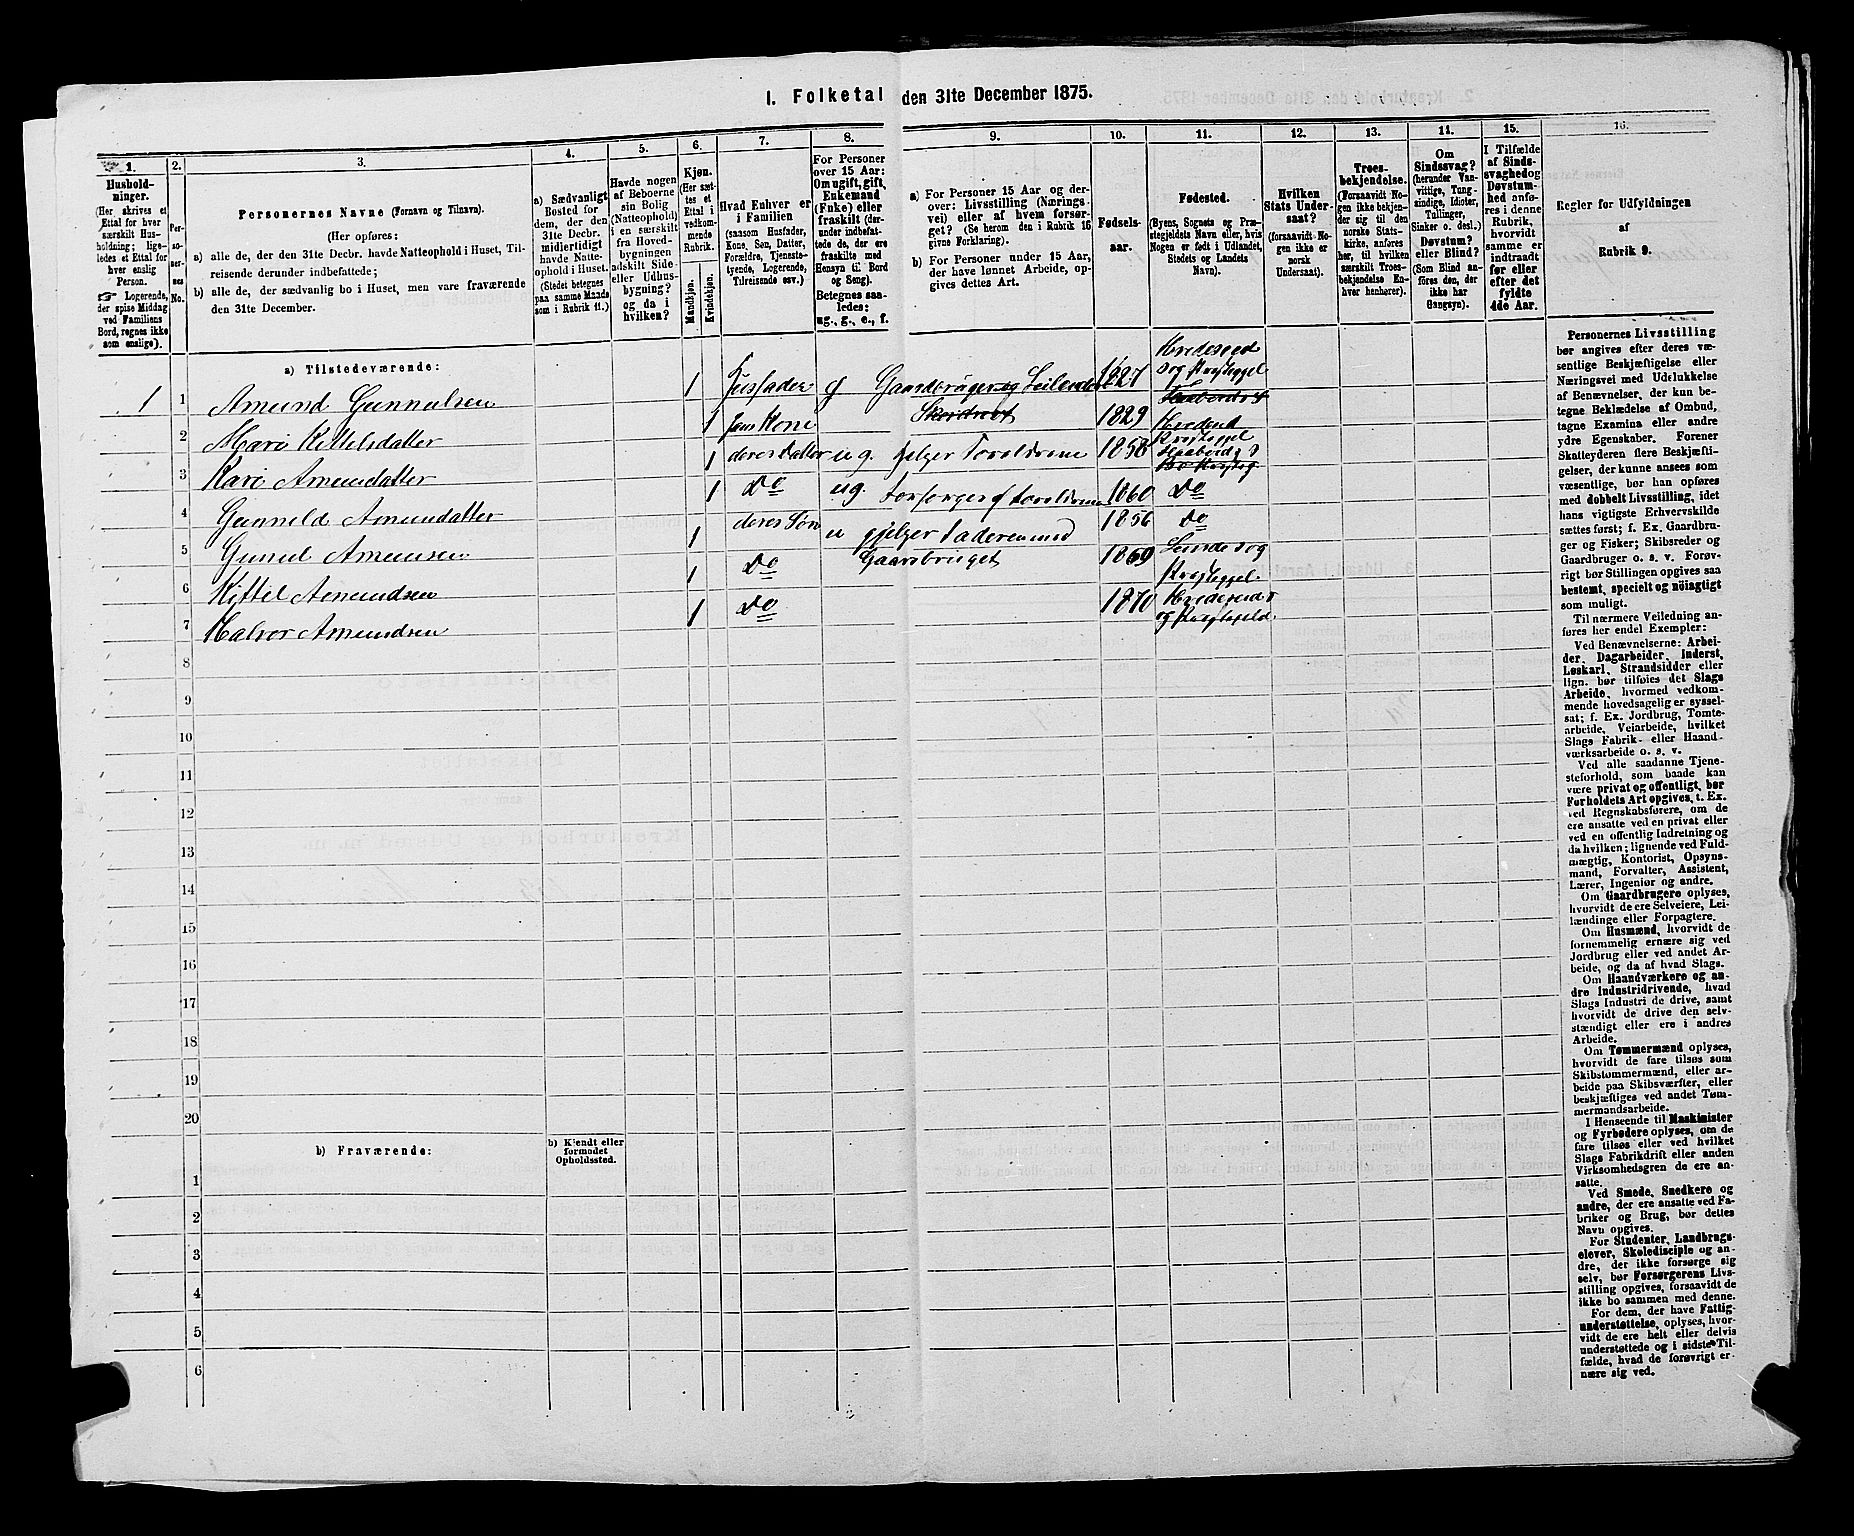 1. Folketal den 31te December 1875.
1.
Hushold-
ninger.
(Her skrives et
Ettal for hver
særskilt Hus-
holdning; lige-
ledes et Ettal for
hver enslig
Person.
Logerende,
der spise Middag
ved Familiens
Bord, regnes ikke
som enslige).
2.
Per-
so-
ner-
nes
No.
3.
Personernes Navne (Fornavn og Tilnavn).
(Her opføres:
a) alle de, der den 31te Decbr. havde Natteophold i Huset, Til-
reisende derunder indbefattede;
b) alle de, der sædvanlig bo i Huset, men vare fraværende
den 31te December.
4.
a) Sædvanligt
Bosted for
dem, der den
31te Decbr.
midlertidigt
havde Natte-
ophold i Huset.
(Stedet betegnes
paa samme Maade
som i Rubrik 11.)
5.
Havde nogen
af Beboerne
sin Bolig
(Natteophold)
i en særskilt
fra Hoved-
bygningen
adskilt Side-
eller Udhus-
bygning?
og da i
hvilken?
6.
Kjøn.
(Her sæt-
tes et
Ettal i
vedkom-
mende
Rubrik.
Mandkjøn.
Kvindekjøn.
7.
Hvad Enhver er
i Familien
(saasom Husfader,
Kone, Søn, Datter,
Forældre, Tjeneste-
tyende, Logerende,
Tilreisende osv.)
8.
For Personer
over 15 Aar:
Om ugift, gift,
Enkemand
(Enke) eller
fraskilt (der-
under indbefat-
tede de, der ere
fraskilte med
Hensyn til Bord
og Seng).
Betegnes saa-
ledes:
ug., g., e., f.
9.
a) For Personer 15 Aar og der-
over: Livsstilling (Nærings-
vei) eller af hvem forsør-
get? (Se herom den i Rubrik 16
givne Forklaring).
b) For Personer under 15 Aar,
der have lønnet Arbeide, op-
gives dettes Art.
10.
Fødsels-
aar.
11.
Fødested.
(Byens, Sognets og Præ-
stegjeldets Navn eller, hvis
Nogen er født i Udlandet,
Stedets og Landets
Navn).
12.
Hvilken
Stats Under-
saat?
(forsaavidt No-
gen ikke er
norsk
Undersaat).
13.
Troes-
bekjendelse.
(Forsaavidt No-
gen ikke bekjen-
der sig til den
norske Stats-
kirke, anføres
her, til hvilken
særskilt Troes-
bekjendelse En-
hver henhører).
14.
Om
Sindssvag?
(herunder Van-
vittige, Tung-
sindige, Idioter,
Tullinger,
Sinker o. desl.)
Døvstum?
eller Blind?
(Som Blind an-
føres den, der
ikke har
Gangsyn).
15.
I Tilfælde
af Sinds-
svaghed og
Døvstum-
hed anfø-
res i denne
Rubrik,
hvorvidt
samme er
indtraadt
før eller
efter det
fyldte
4de Aar.
16.
Regler for Udfyldningen
af
Rubrik 9.
a) Tilstedeværende:
1 1 Amund Gunnulsen 1 Husfader g Gaardbruger og Leilending 1827
2 Mari Kittelsdatter 1 hans Kone 1829
3 Kari Amundatter 1 deres Datter ug. hjelper Foreldrene 1858
4 Gunnild Amundatter 1 Do ug. forsørges af Foreldrene 1860 Do
5 Gunul Amundsen 1 deres Søn u hjelper Faderen med Gaardbruget 1856 Do
6 Kittel Amundsen 1 Do 1869
7 Halvor Amundsen 1 Do 1870
8
9
10
11
12
13
14
15
16
17
18
19
20
b) Fraværende:
b) Kjendt eller
formodet
Opholdssted.
1
2
3
4
5
6
Personernes Livsstilling
bør angives efter deres væ-
sentlige Beskjæftigelse eller
Næringsvei med Udelukkelse
af Benævnelser, der kun be-
tegne Beklædelse af Ombud,
tagne Examina eller andre
ydre Egenskaber. Forener
Skatteyderen flere Beskjæfti-
gelser, der kunne ansees som
væsentlige, bør han opføres
med dobbelt Livsstilling, idet
hans vigtigste Erhvervskilde
sættes først; f. Ex. Gaardbru-
ger og Fisker; Skibsreder og
Gaardbruger o. s. v. Forøv-
rigt bør Stillingen opgives saa
bestemt, specielt og nöiagtigt
som muligt.
Til nærmere Veiledning an-
føres her endel Exempler:
Ved Benævnelserne: Arbei-
der, Dagarbeider, Inderst,
Løskarl, Strandsidder eller
lign. bør tilføies det Slags
Arbeide, hvormed vedkom-
mende hovedsagelig er syssel-
sat; f. Ex. Jordbrug, Tomte-
arbeide, Veiarbeide, hvilket
Slags Fabrik- eller Haand-
værksarbeide o. s. v.
Ved alle saadanne Tjene-
steforhold, som baade kan
være privat og offentligt, bør
Forholdets Art opgives, t. Ex.
ved Regnskabsførere, om de
ere ansatte ved en privat eller
ved en offentlig Indretning og
da hvilken; lignende ved Fuld-
mægtig, Kontorist, Opsyns-
mand, Forvalter, Assistent,
Lærer, Ingeniør og andre.
Om Gaardbrugere oplyses,
hvorvidt de ere Selveiere, Lei-
lændinge eller Forpagtere.
Om Husmænd, hvorvidt de
fornemmelig ernære sig ved
Jordbrug eller ved andet Ar-
beide, og da af hvad Slags.
Om Haandværkere og an-
dre Industridrivende, hvad
Slags Industri de drive, samt
hvorvidt de drive den selv-
stændigt eller ere i andres
Arbeide.
Om Tømmermænd oplyses,
hvorvidt de fare tilsøs som
Skibstømmermænd, eller ar-
beide paa Skibsværfter, eller
beskjæftiges ved andet Tøm-
mermandsarbeide.
I Henseende til Maskinister
og Fyrbødere oplyses, om de
fare tilsøs eller ved hvilket
Slags Fabrikdrift eller anden
Virksomhedsgren de ere an-
satte.
Ved Smede, Snedkere og
andre, der ere ansatte ved Fa-
briker og Brug, bør dettes
Navn opgives.
For Studenter, Landbrugs-
elever, Skoledisciple og an-
dre, der ikke forsørge sig
selv, bør Forsørgerens Livs-
stilling opgives, forsaavidt de
ikke bo sammen med denne.
For dem, der have Fattig-
understøttelse, oplyses, hvor-
vidt de ere helt eller delvis
understøttede og i sidste Til-
fælde, hvad de forøvrigt er-
nære sig ved.